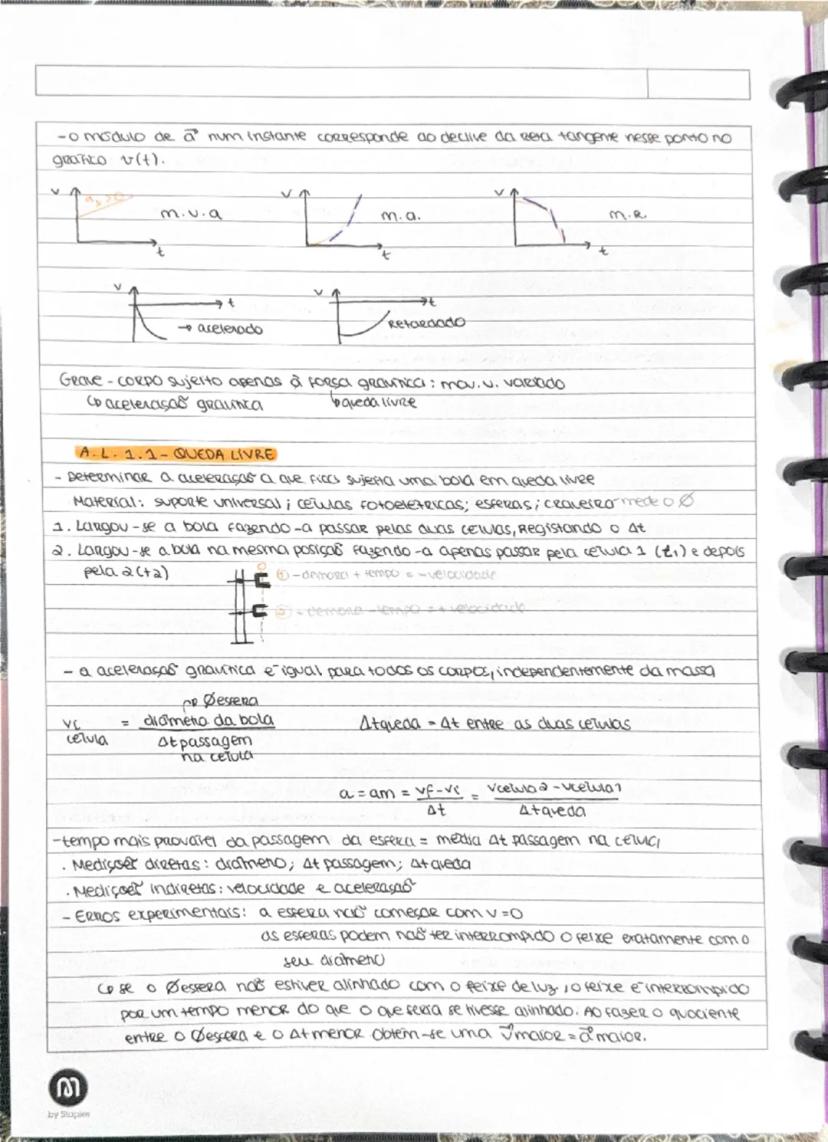 - o módulo de a⃗ num instante corresponde ao declive da reta tangente nesse ponto no
gráfico v(t).
v a > 0 t m.v.a
v t m.a.
v t m.R
v t → acelerado
v t Retardado
Grave - corpo sujeito apenas à força gravítica: mov. v. variado
↳ aceleração gravítica ↳ queda livre
A.L. 1.1 - QUEDA LIVRE
- Determinar a aceleração a que fica sujeita uma bola em queda livre
Material: suporte universal; células fotoelétricas; esferas; craveira mede o Ø
1. Largou-se a bola fazendo-a passar pelas duas células, registando o Δt
2. Largou-se a bola na mesma posição fazendo-a apenas passar pela célula 1 (t1) e depois
pela 2 (t2)
① - demora + tempo = - velocidade
② - demora - tempo = + velocidade
- a aceleração gravítica é igual para todos os corpos, independentemente da massa
↱ Øesfera
vc célula = diâmetro da bola / Δt passagem na célula
Δtqueda = Δt entre as duas células
a = am = vf - vi / Δt = vcélula2 - vcélula1 / Δtqueda
- tempo mais provável da passagem da esfera = média Δt passagem na célula
. Medições diretas: diâmetro; Δt passagem; Δt queda
. Medições indiretas: velocidade e aceleração
- Erros experimentais: a esfera não começar com v=0
as esferas podem não ter interrompido o feixe exatamente com o
seu diâmetro
↳ se o Øesfera não estiver alinhado com o feixe de luz, o feixe é interrompido
por um tempo menor do que o que seria se tivesse alinhado. Ao fazer o quociente
entre o Øesfera e o Δt menor obtém-se uma v⃗ maior = a⃗ maior.
by Staples